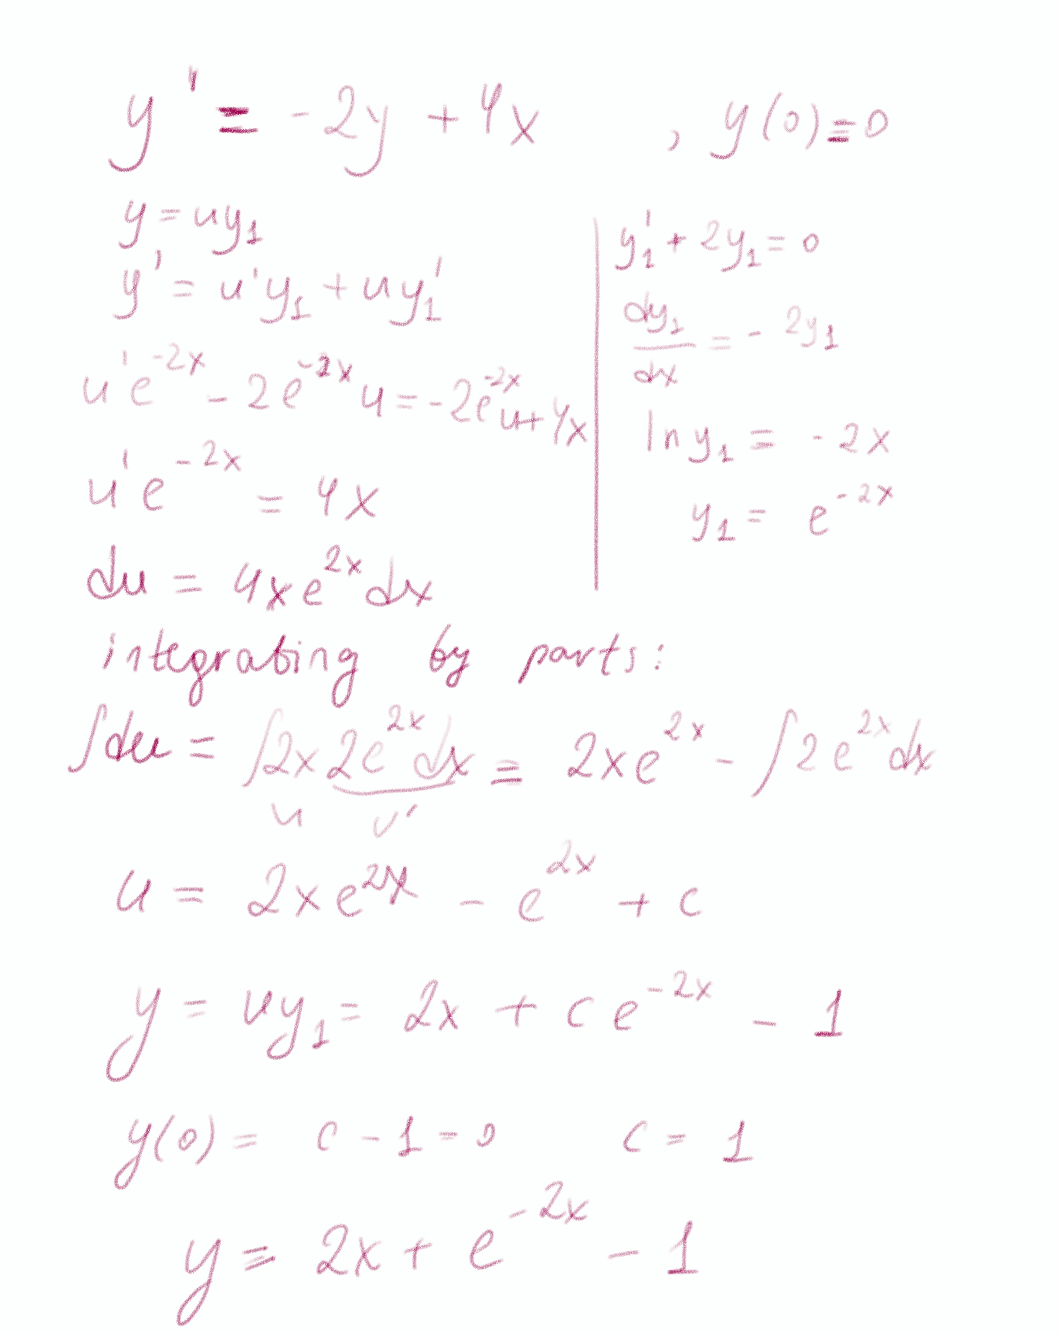 y' = -2y + 4x , y(0) = 0
y = uy₁
y' = u'y₁ + uy₁'
u'e^{-2x} - 2e^{-2x}u = -2e^{-2x}u + 4x
u'e^{-2x} = 4x
du = 4xe^{2x}dx
y₁' + 2y₁ = 0
dy₁/dx = -2y₁
ln y₁ = -2x
y₁ = e^{-2x}
integrating by parts:
∫du = ∫2x 2e^{2x}dx = 2xe^{2x} - ∫2e^{2x}dx
u v'
u = 2xe^{2x} - e^{2x} + c
y = uy₁ = 2x + ce^{-2x} - 1
y(0) = c - 1 = 0 c = 1
y = 2x + e^{-2x} - 1